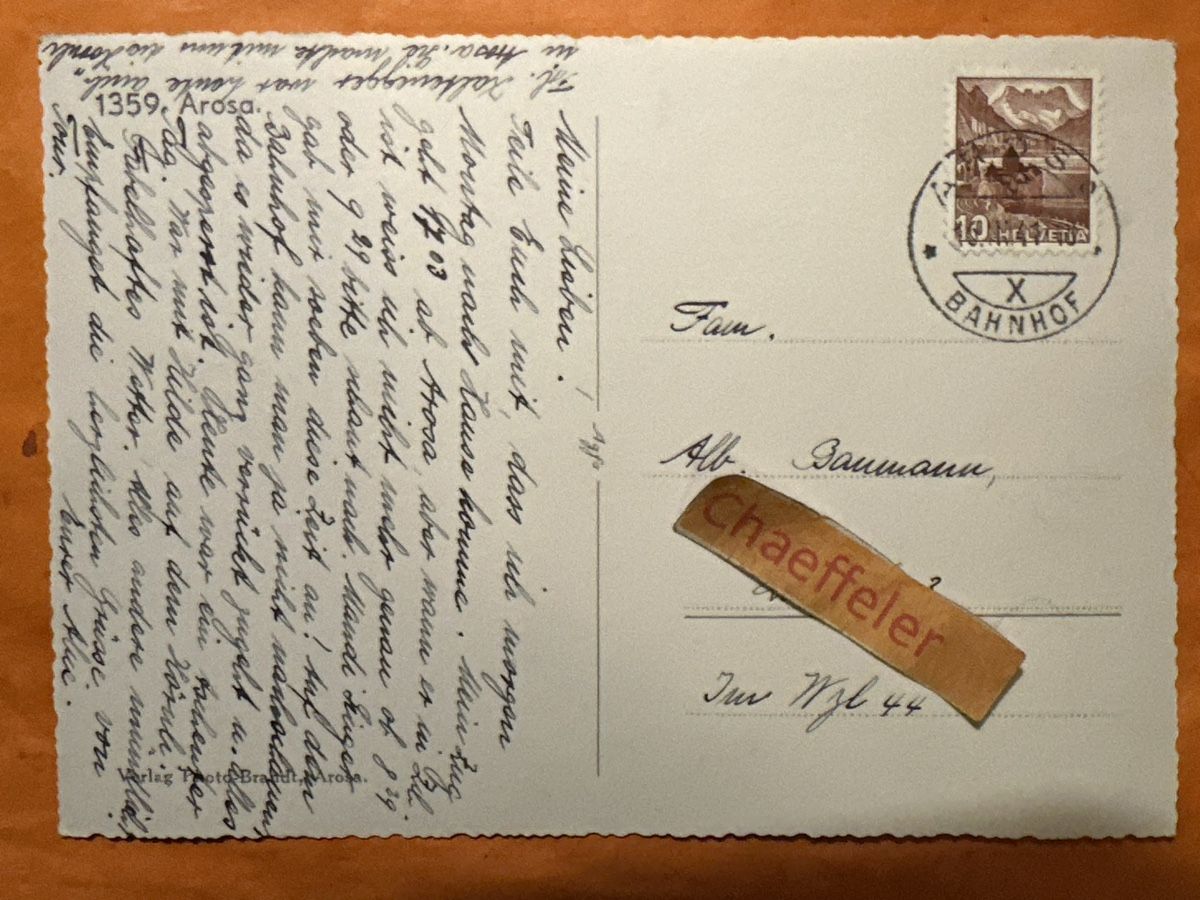 1359. Arosa.
Meine Lieben.
Teile Euch mit, dass ich morgen
Montag nach Hause komme. Mein Zug
geht 1703 ab Arosa, aber wann er in
ist weiss ich nicht mehr genau ob 8 29
oder 9 29 bitte schaut nach.
gab mir soeben diese Zeit an! Auf dem
Bahnhof kann man ja nicht nachschauen
da es wieder ganz verrückt zugeht u. alles
abgesperrt ist. Heute war ein schöner
Tag. War mit Hilde auf dem Hörnli
Fabelhaftes Wetter. Alles andere mündlich
Empfanget die herzlichsten Grüsse von
Eurer
Frl. Kaltenegger war heute auch
in Arosa. Sie machte mit uns die Hörnli
Tour.
Verlag Photo-Brandt, Arosa.
10 HELVETIA
X
BAHNHOF
Fam.
Alb. Baumann,
Chaeffeler
Im Wyl 44